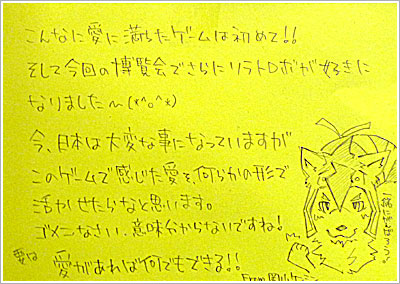 こんなに愛に満ちたゲームは初めて!!
そして今回の博覧会でさらにリラトロボが好きに
なりました～(*^o^*)
今、日本は大変な事になっていますが
このゲームで感じた愛を、何らかの形で
活かせたらなと思います。
ゴメンなさい、意味分からないですね!
要は
愛があれば何でもできる!!
From